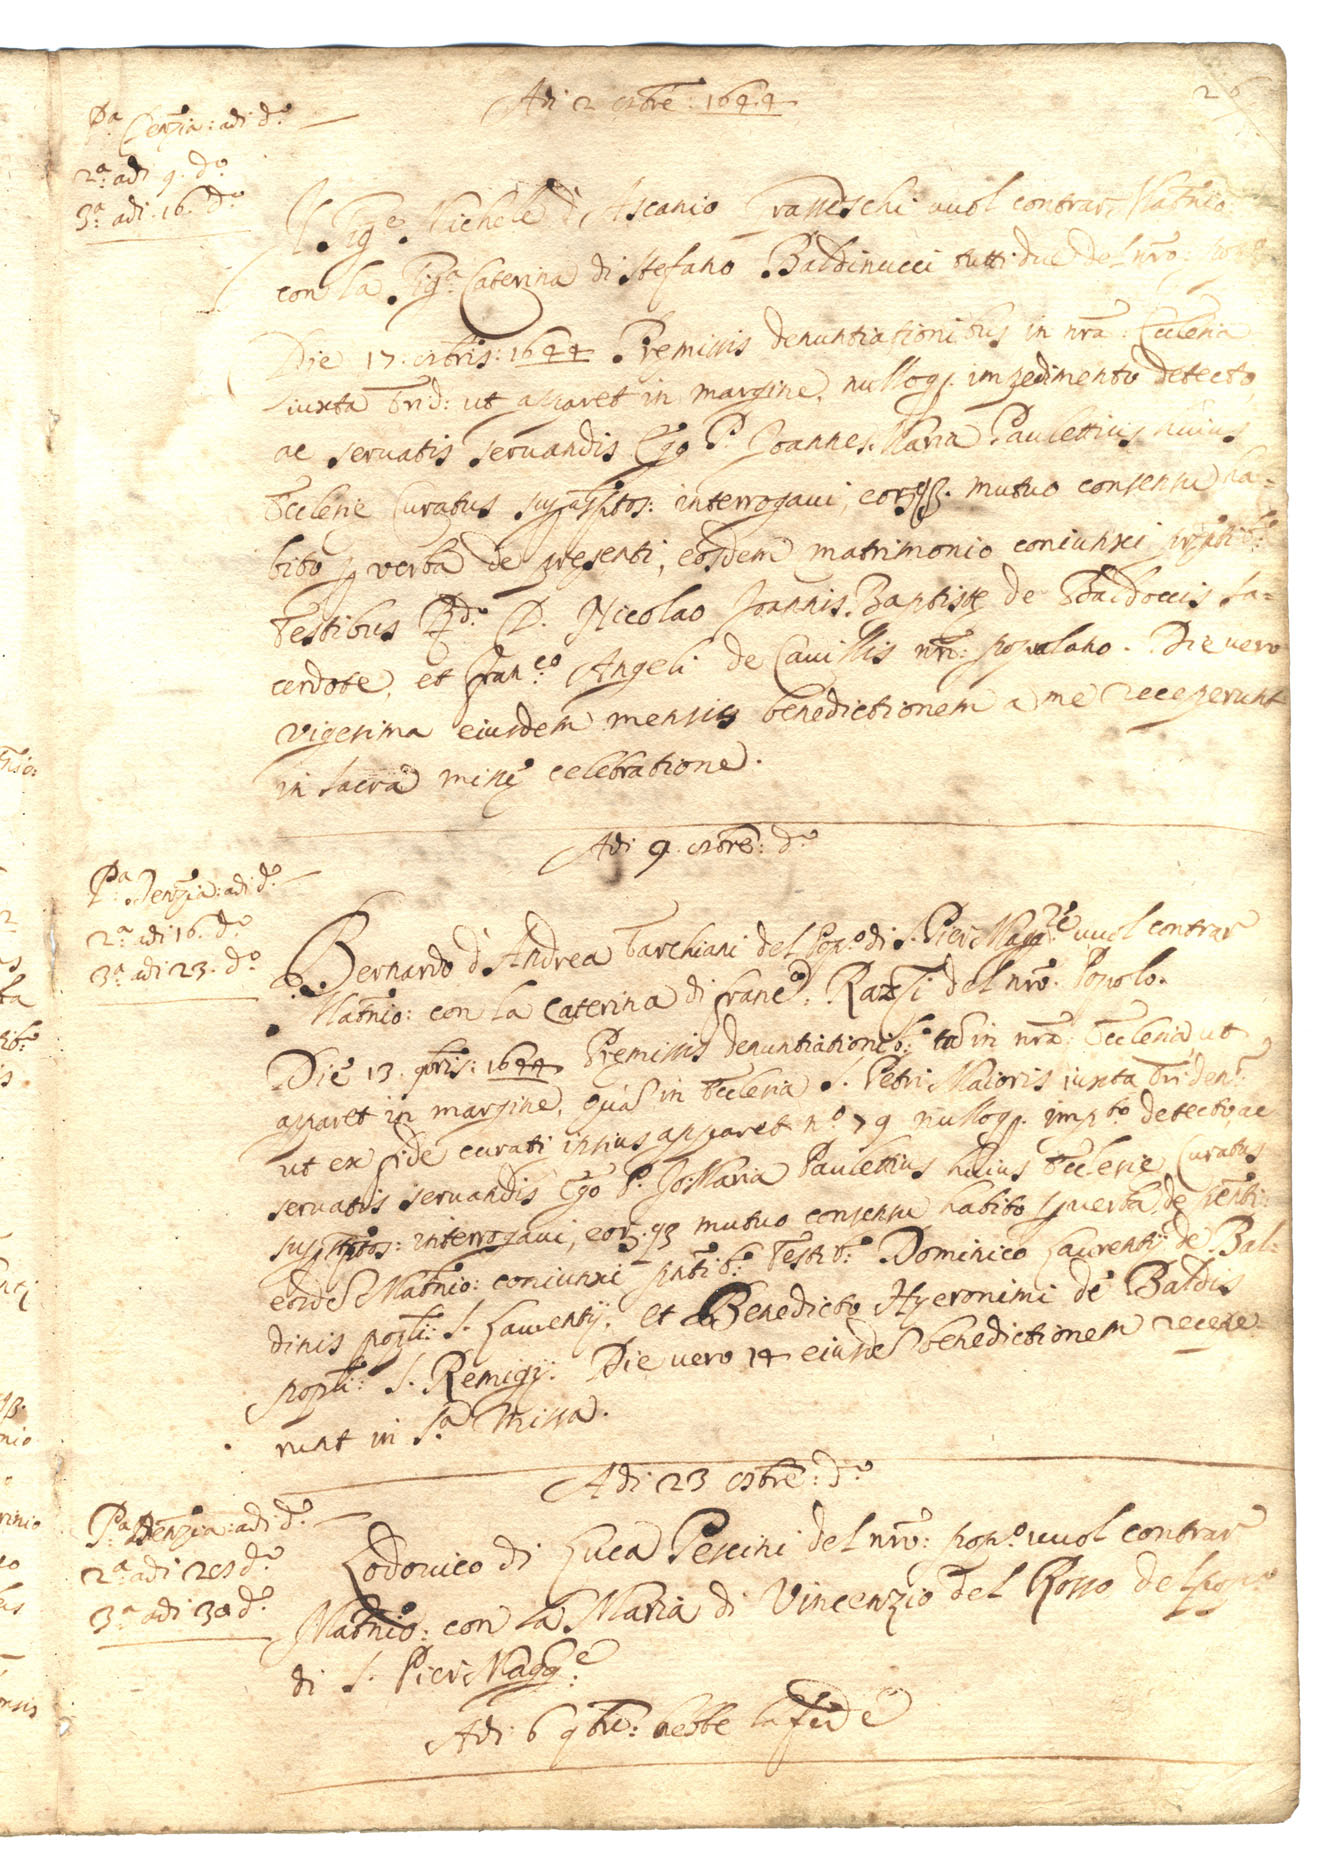 Adi 2 8bre: 1644
Pa Denzia: adi do
2a adi 9. do
3a adi. 16. do
Il Sigre Michele d'Ascanio Franceschi uuol contrar Matrio:
con la Siga Caterina di Stefano Baldinucci tutti due del nro:
Die 17. 8bris: 1644 Premissis denuntiationibus in nra: Ecclesia
iuxta Trid: ut apparet in margine, nulloq. impedimento detecto,
ac seruatis seruandis Ego P. Joannes Maria Paulettius huius
Ecclesie Curatus suprasptos: interrogaui, eorq. mutuo consensu ha=
bito p verba de presenti, eosdem matrimonio coniunxi pntib:
Testibus Rdo D. Nicolao Joannis Baptiste de Baldoccis Sa=
cerdote, et Franco Angeli de Cauillis nro: populano. Die uero
vigesima eiusdem mensis benedictionem a me receperunt
in sacra misse celebratione.
Adi 9. 8bre: do
Pa Denzia: adi do
2a adi 16. do
3a adi 23. do
Bernardo d'Andrea Tarchiani del Popo di S. Pier Maggre uuol contrar
Matnio: con la Caterina di Franco. Razzi del nro. Popolo.
Die 13. 9bris: 1644 Premissis denuntiationib: ta in nra: Ecclesia ut
apparet in margine, qua in Ecclesia S. Petri Maioris iuxta Triden:
ut ex fide curati ipsius apparet no 79 nulloq. impto detecto, ac
seruatis seruandis Ego P. Jo: Maria Paulettius huius Ecclesie Curatus
supsptos: interrogaui, eorq mutuo consensu habito p uerba de pnti:
eosde Matnio: coniunxi pntib: Testib: Dominico Laurentii de Bal=
dinis popli: S. Laurentij, et Benedicto Hyeronimi de Baldis
popli: S. Remigij. Die uero 14 eiusde benedictionem recepe=
runt in Sa Missa.
Adi 23 8bre: do
Pa Denzia: adi do
2a adi 28 do
3a adi 30 do
Lodouico di Luca Pescini del nro: popo uuol contrar
Matnio: con la Maria di Vincenzio del Rosso del popo
di S. Pier Maggre
Adi 6 9bre: hebbe la fede